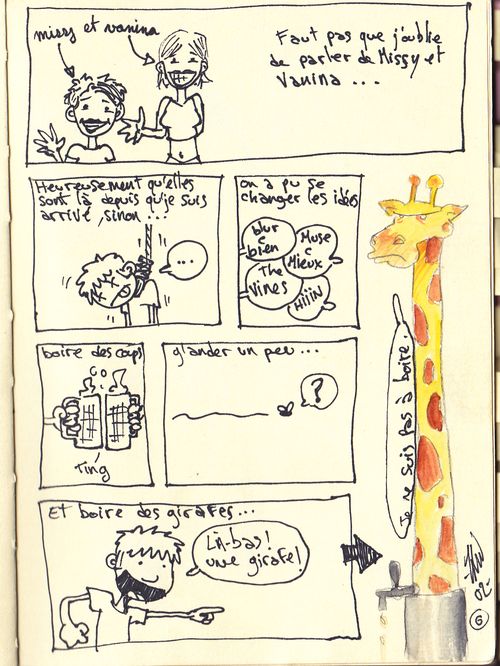 missy et vanina
Faut pas que j'oublie
de parler de Missy et
Vanina ...
Heureusement qu'elles
sont là depuis qu'je suis
arrivé, sinon...
...
on a pu se
changer les idées
blur
c
bien
Muse
c
Mieux
the
Vines
HiiiN
boire des coups
Ting
glander un peu...
?
Et boire des girafes...
Là-bas!
une girafe!
Je ne suis pas à boire.
02
6